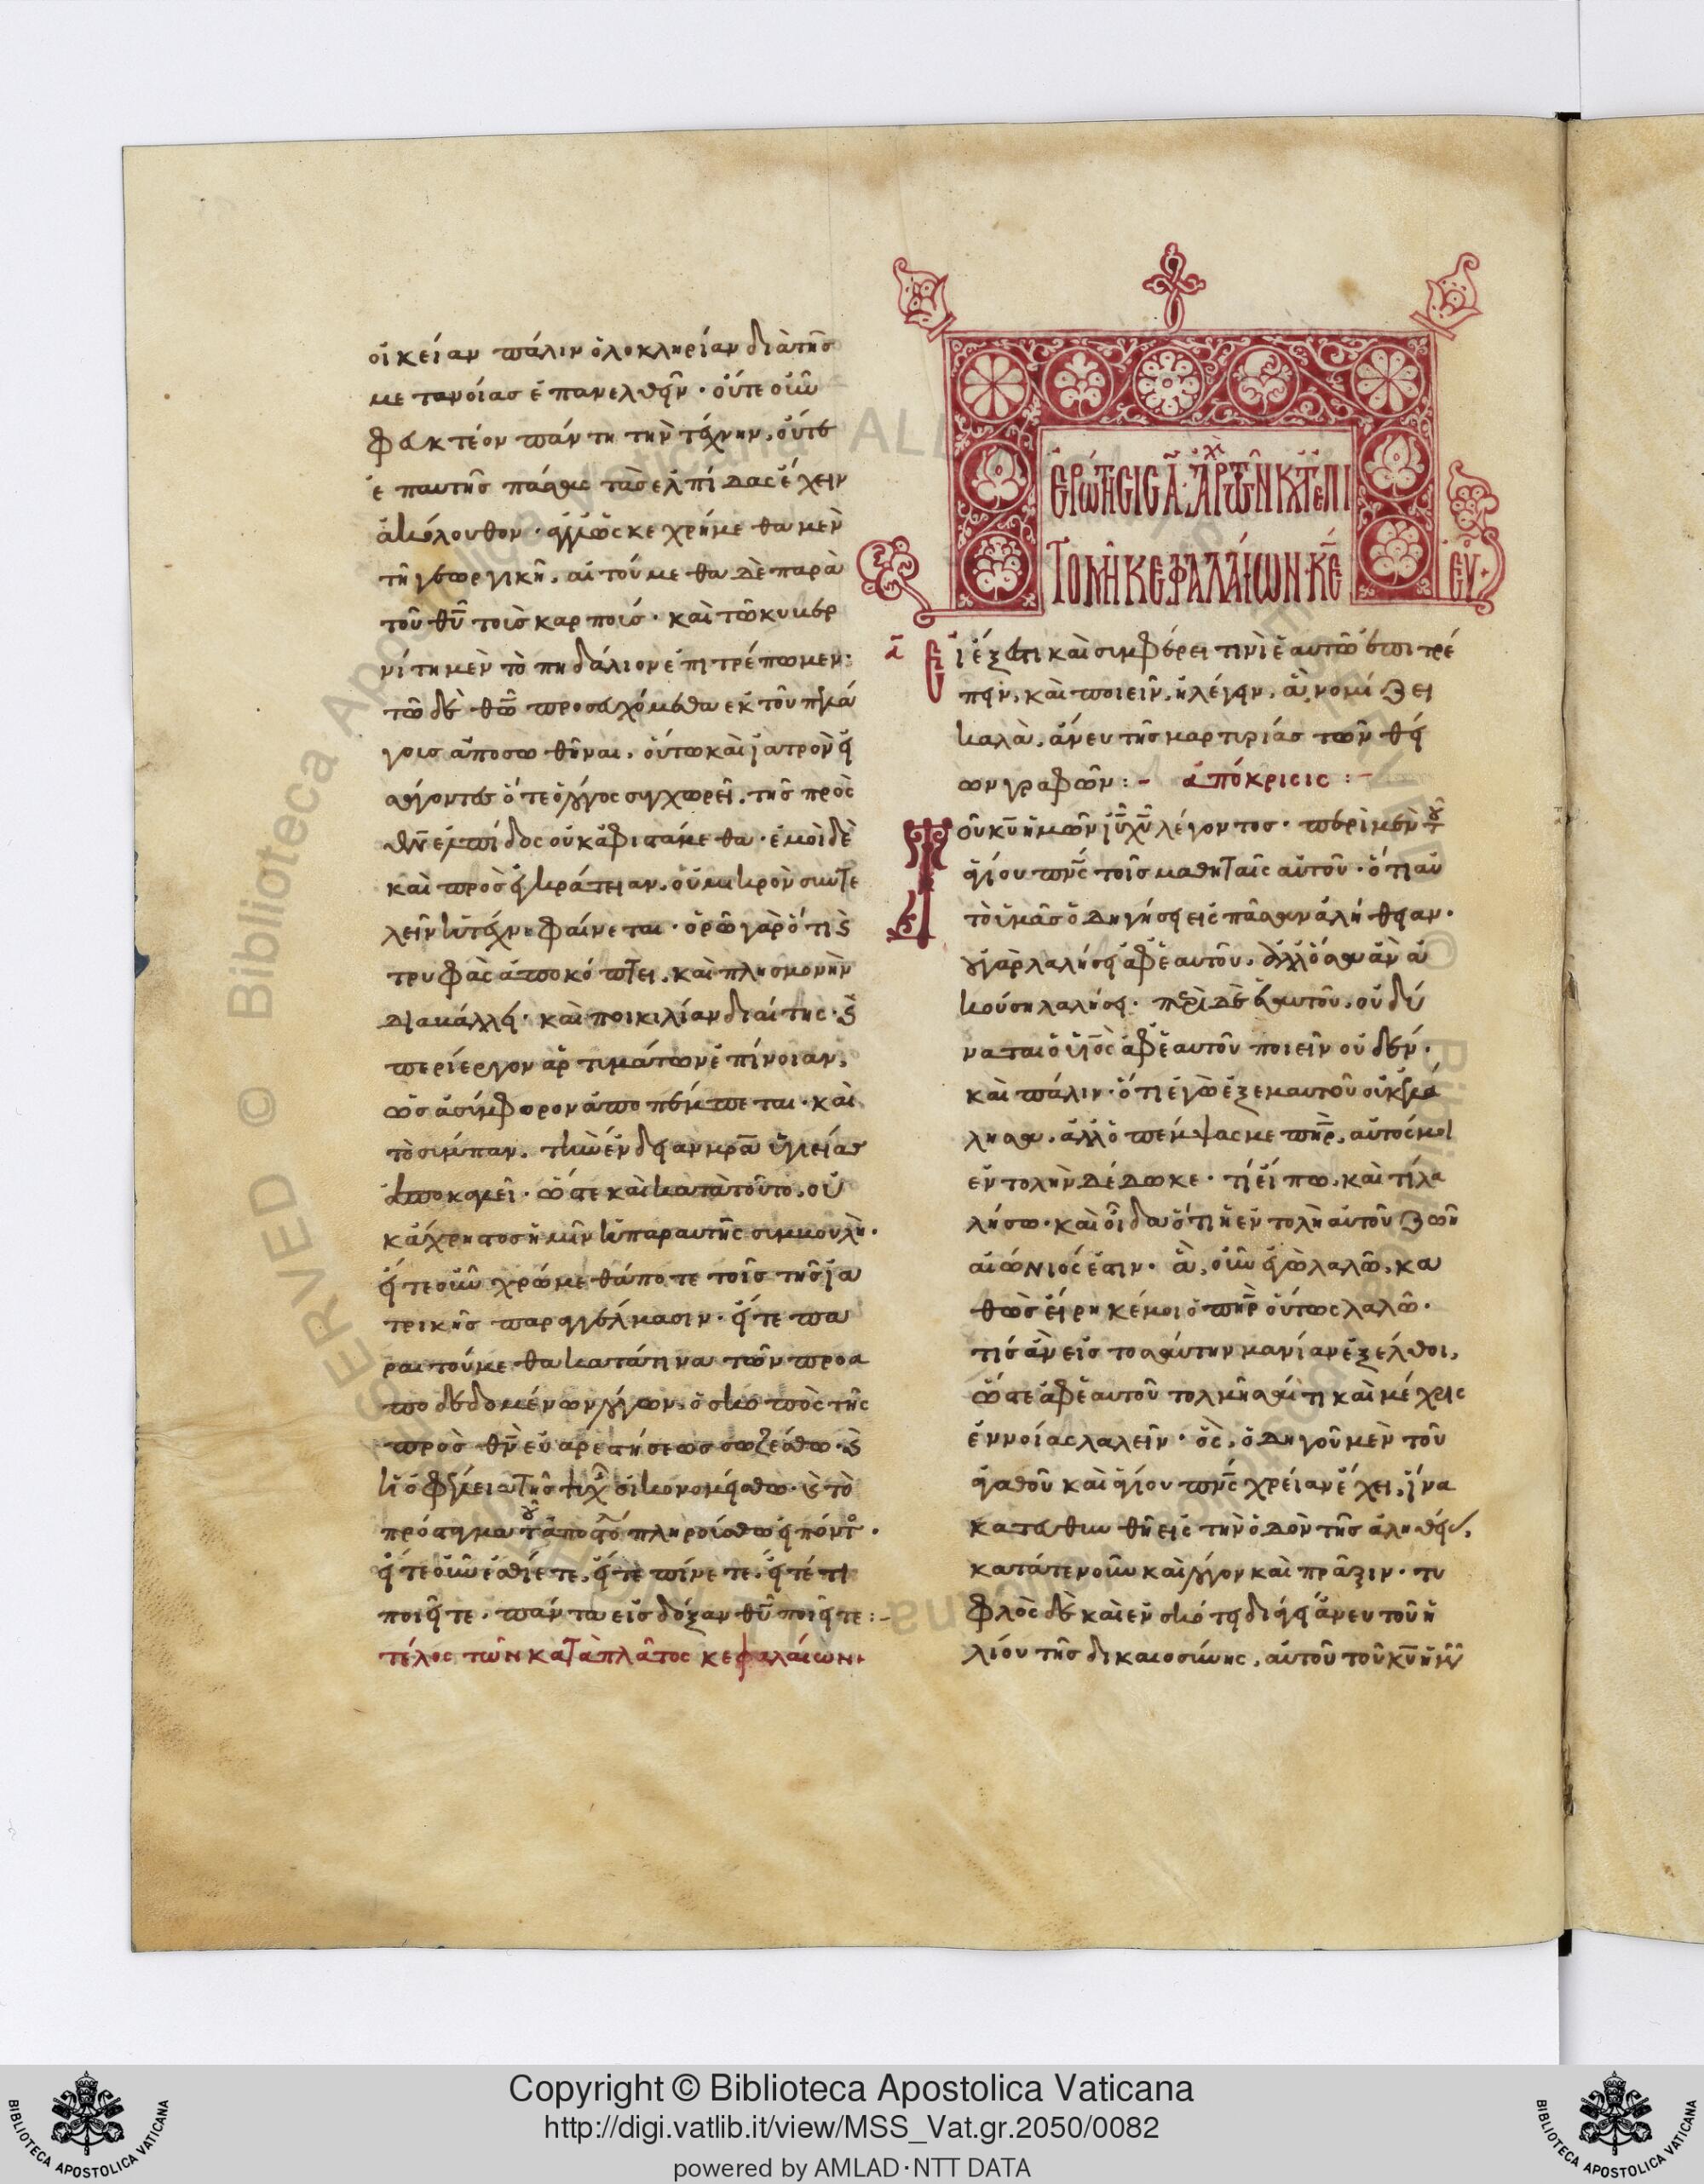 οἰκείαν πάλιν ὁλοκληρίαν διὰ τῆς
μετανοίας ἐπανελθεῖν· οὔτε οὖν
φευκτέον πάντη τὴν τέχνην, οὔτε
ἐπ αυτῆς πάσας τὰς ἐλπίδας ἔχειν
ἀκόλουθον· ἀλλ ὡς κεχρήμεθα μὲν
τῆ γεωργικῆ, αἰτούμεθα δὲ παρὰ
τοῦ θῦ τοὺς καρπούς· καὶ τῶ κυβερ
νίτη μὲν τὸ πηδάλιον ἐπιτρέπωμεν·
τῶ δὲ θῶ προσευχόμεθα εκ τοῦ πελά
γους ἀποσωθῆναι, οὕτω καὶ ἰατρὸν εἰ
σάγοντες ὅτε ὁ λόγος συγχωρεῖ, τῆς πρὸς
θν ἐλπίδος οὐκ ἀφιστάμεθα· ἐμοὶ δὲ
καὶ πρὸς ἐγκράτειαν, οὐ μικρὸν συντε
λεῖν ἡ τέχνη φαίνεται· ὁρῶ γὰρ ὅτι καὶ
τρυφὰς ἀποκόπτει, καὶ πλησμονὴν
διαβάλλει· καὶ ποικιλίαν διαίτης· καὶ
περίεργον ἀρτυμάτων ἐπίνοιαν,
ὡς ἀσύμφορον ἀποπέμπεται· καὶ
τὸ σύμπαν, τὴν ἔνδειαν μρα ὑγιείας
ἀποκαλεῖ· ὥστε καὶ κατὰ τοῦτο, οὐ
κ ἄχρηστος ἡμῖν ἡ παρ αυτῆς συμβουλὴ·
εἴτε οὖν χρώμεθά ποτε τοῖς τῆς ἰα
τρικῆς παραγγέλμασιν· εἴτε πα
ραιτούμεθα κατά τινα τῶν προα
ποδεδομένων λόγων, ὁ σκοπὸς τῆς
πρὸς θν εὐαρεστήσεως σωζέσθω· καὶ
ἡ ὀφέλεια τῆς ψυχ οἰκονομείσθω· καὶ τὸ
πρόσταγμα τοῦ ἀποστό πληρούσθω εἰπόντο·
εἴτε οὖν ἐσθίετε, εἴτε πίνετε, εἴτέ τι
ποιεῖτε, πάντα εἰς δόξαν θῦ ποιεῖτε:-
τέλος τῶν κατὰ πλάτος κεφαλαίων·
ἐρώτησις α· ἀρχὴ τῶν κατ ἐπι
τομὴν κεφαλαίων· κε εὐ·
α
Εἰ ἔξεστι καὶ συμφέρει τινὶ ἑαυτῶ ἐπιτρέ
πειν, καὶ ποιεῖν, ἢ λέγειν, ἃ νομίζει
καλὰ, ἄνευ τῆς μαρτυρίας τῶν θεο
πνεύστων γραφῶν:- ἀπόκρισις:-
Τοῦ κυ ἡμῶν ιυ χυ λέγοντος· περὶ μὲν τοῦ
ἁγίου πνς τοῖς μαθηταῖς αὐτοῦ· ὅτι αὐ
τὸ ὑμᾶς ὁδηγήσει εἰς πᾶσαν ἀλήθειαν·
οὐ γὰρ λαλήσει ἀφ ἑαυτοῦ, ἀλλ ὅσα ἂν ἀ
κούση λαλήσει· περὶ δὲ ἑαυτοῦ, οὐ δύ
ναται ὁ υἱὸς ἀφ ἑαυτοῦ ποιεῖν οὐδέν·
καὶ πάλιν· ὅτι ἐγὼ ἐξ εμαυτοῦ οὐκ ἐλά
λησα, ἀλλ ὁ πέμψας με πηρ, αὐτός μοι
ἐντολὴν δέδωκε· τί εἴπω, καὶ τί λα
λήσω· καὶ οἶδα ὅτι ἡ ἐντολὴ αὐτοῦ ζωὴ
αἰώνιός ἐστιν· ἃ, οὖν ἐγὼ λαλῶ, κα
θὼς εἴρηκέ μοι ὁ πηρ οὕτως λαλῶ·
τίς ἂν εἰς τοσαύτην μανίαν ἐξέλθοι,
ὥστε ἀφ ἑαυτοῦ τολμῆσαί τι καὶ μέχρις
ἐννοίας λαλεῖν· ὃς, ὁδηγοῦ μὲν τοῦ
ἀγαθοῦ καὶ ἁγίου πνς χρείαν ἔχει, ἵνα
κατευθυνθῆ εἰς τὴν ὁδὸν τῆς ἀληθείας,
κατά τε νοῦν καὶ λόγον καὶ πρᾶξιν· τυ
φλὸς δὲ καὶ ἐν σκότει διάγει ἄνευ τοῦ ἡ
λίου τῆς δικαιοσύνης, αὐτοῦ τοῦ κυ ἡμῶν
Copyright © Biblioteca Apostolica Vaticana
http://digi.vatlib.it/view/MSS_Vat.gr.2050/0082
powered by AMLAD·NTT DATA